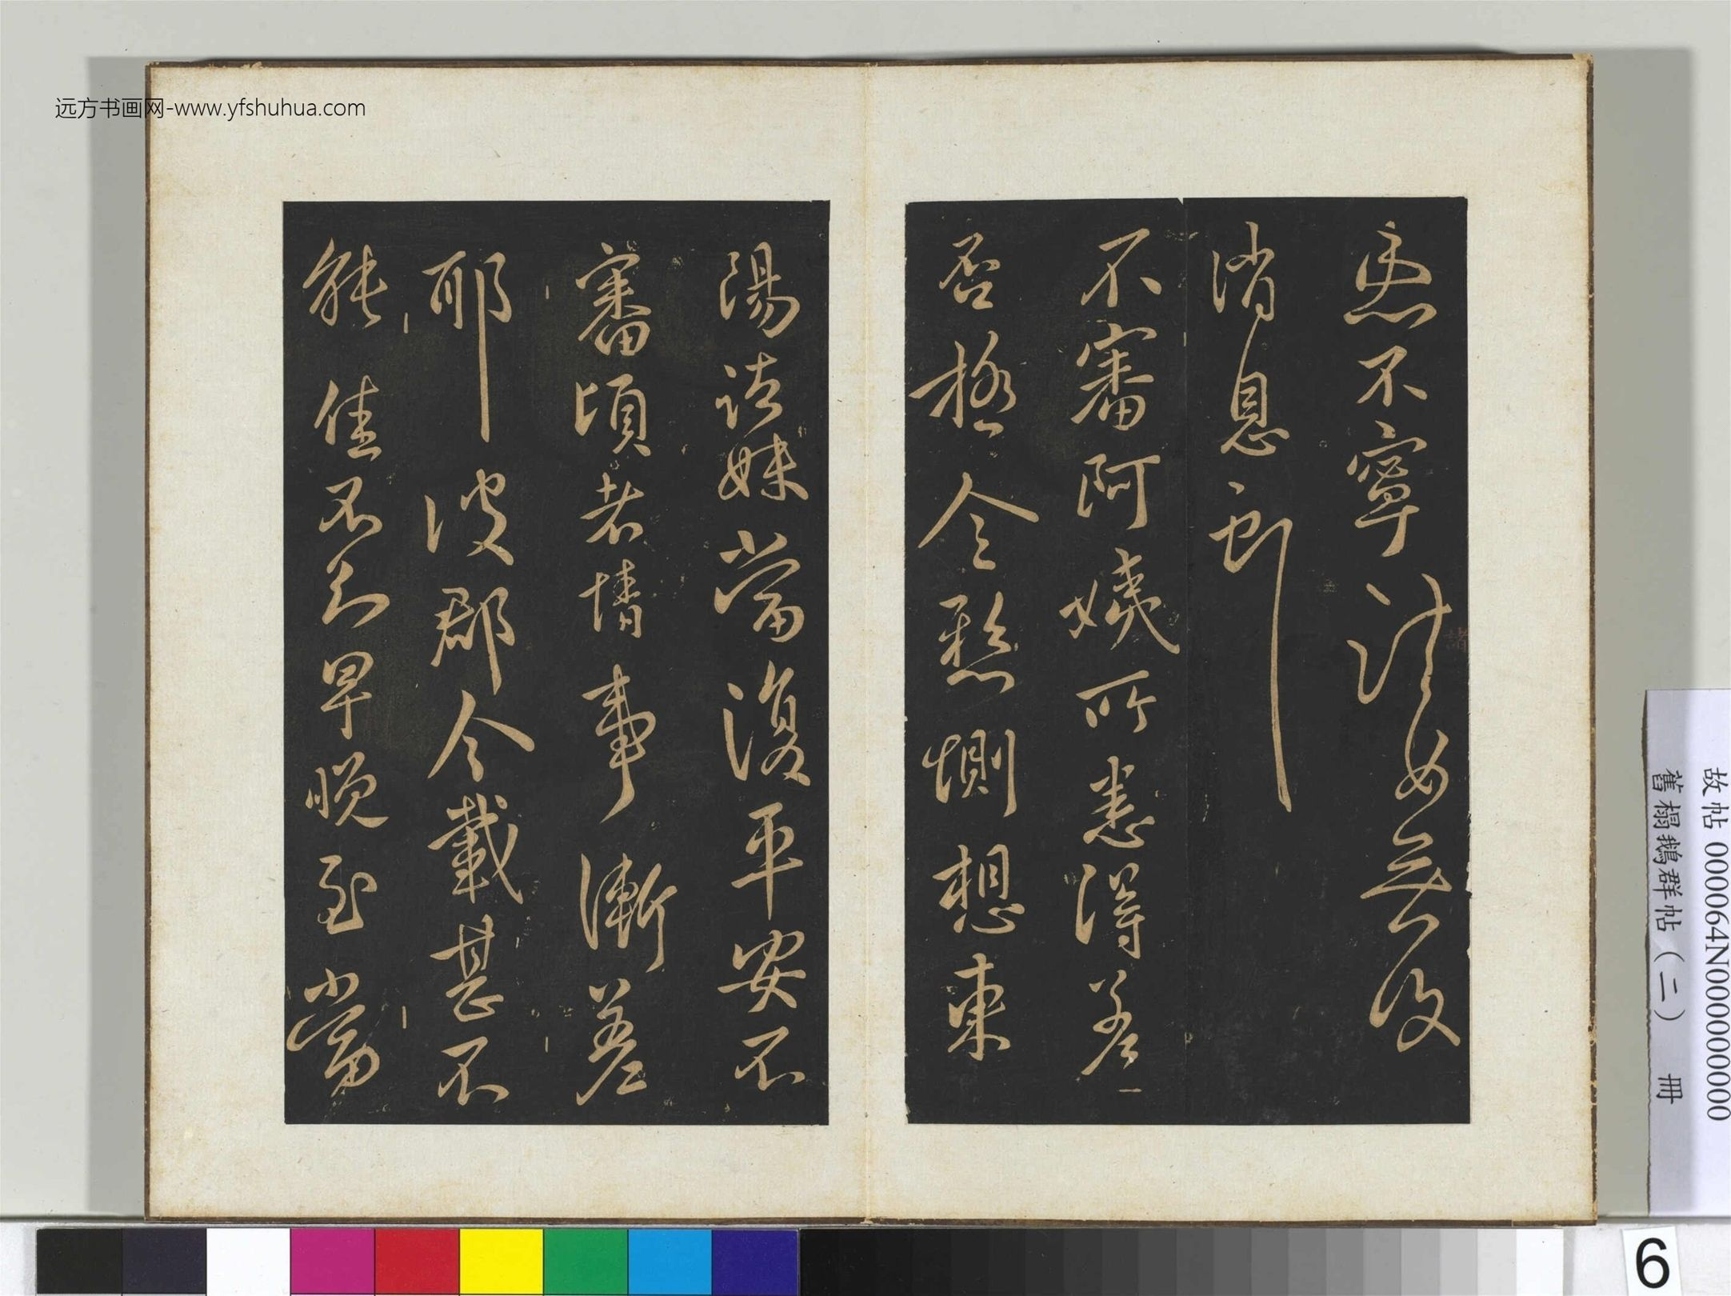 不寧諸女無復
消息
不審阿姨所患得差
否極令懸惻想東
陽諸妹當復平安不
審頃者情事漸差
耶彼郡今載甚不
能佳不知早晚至當
远方书画网-www.yfshuhua.com
諸
故帖 000064N000000000
舊榻鵝群帖（二） 冊
6